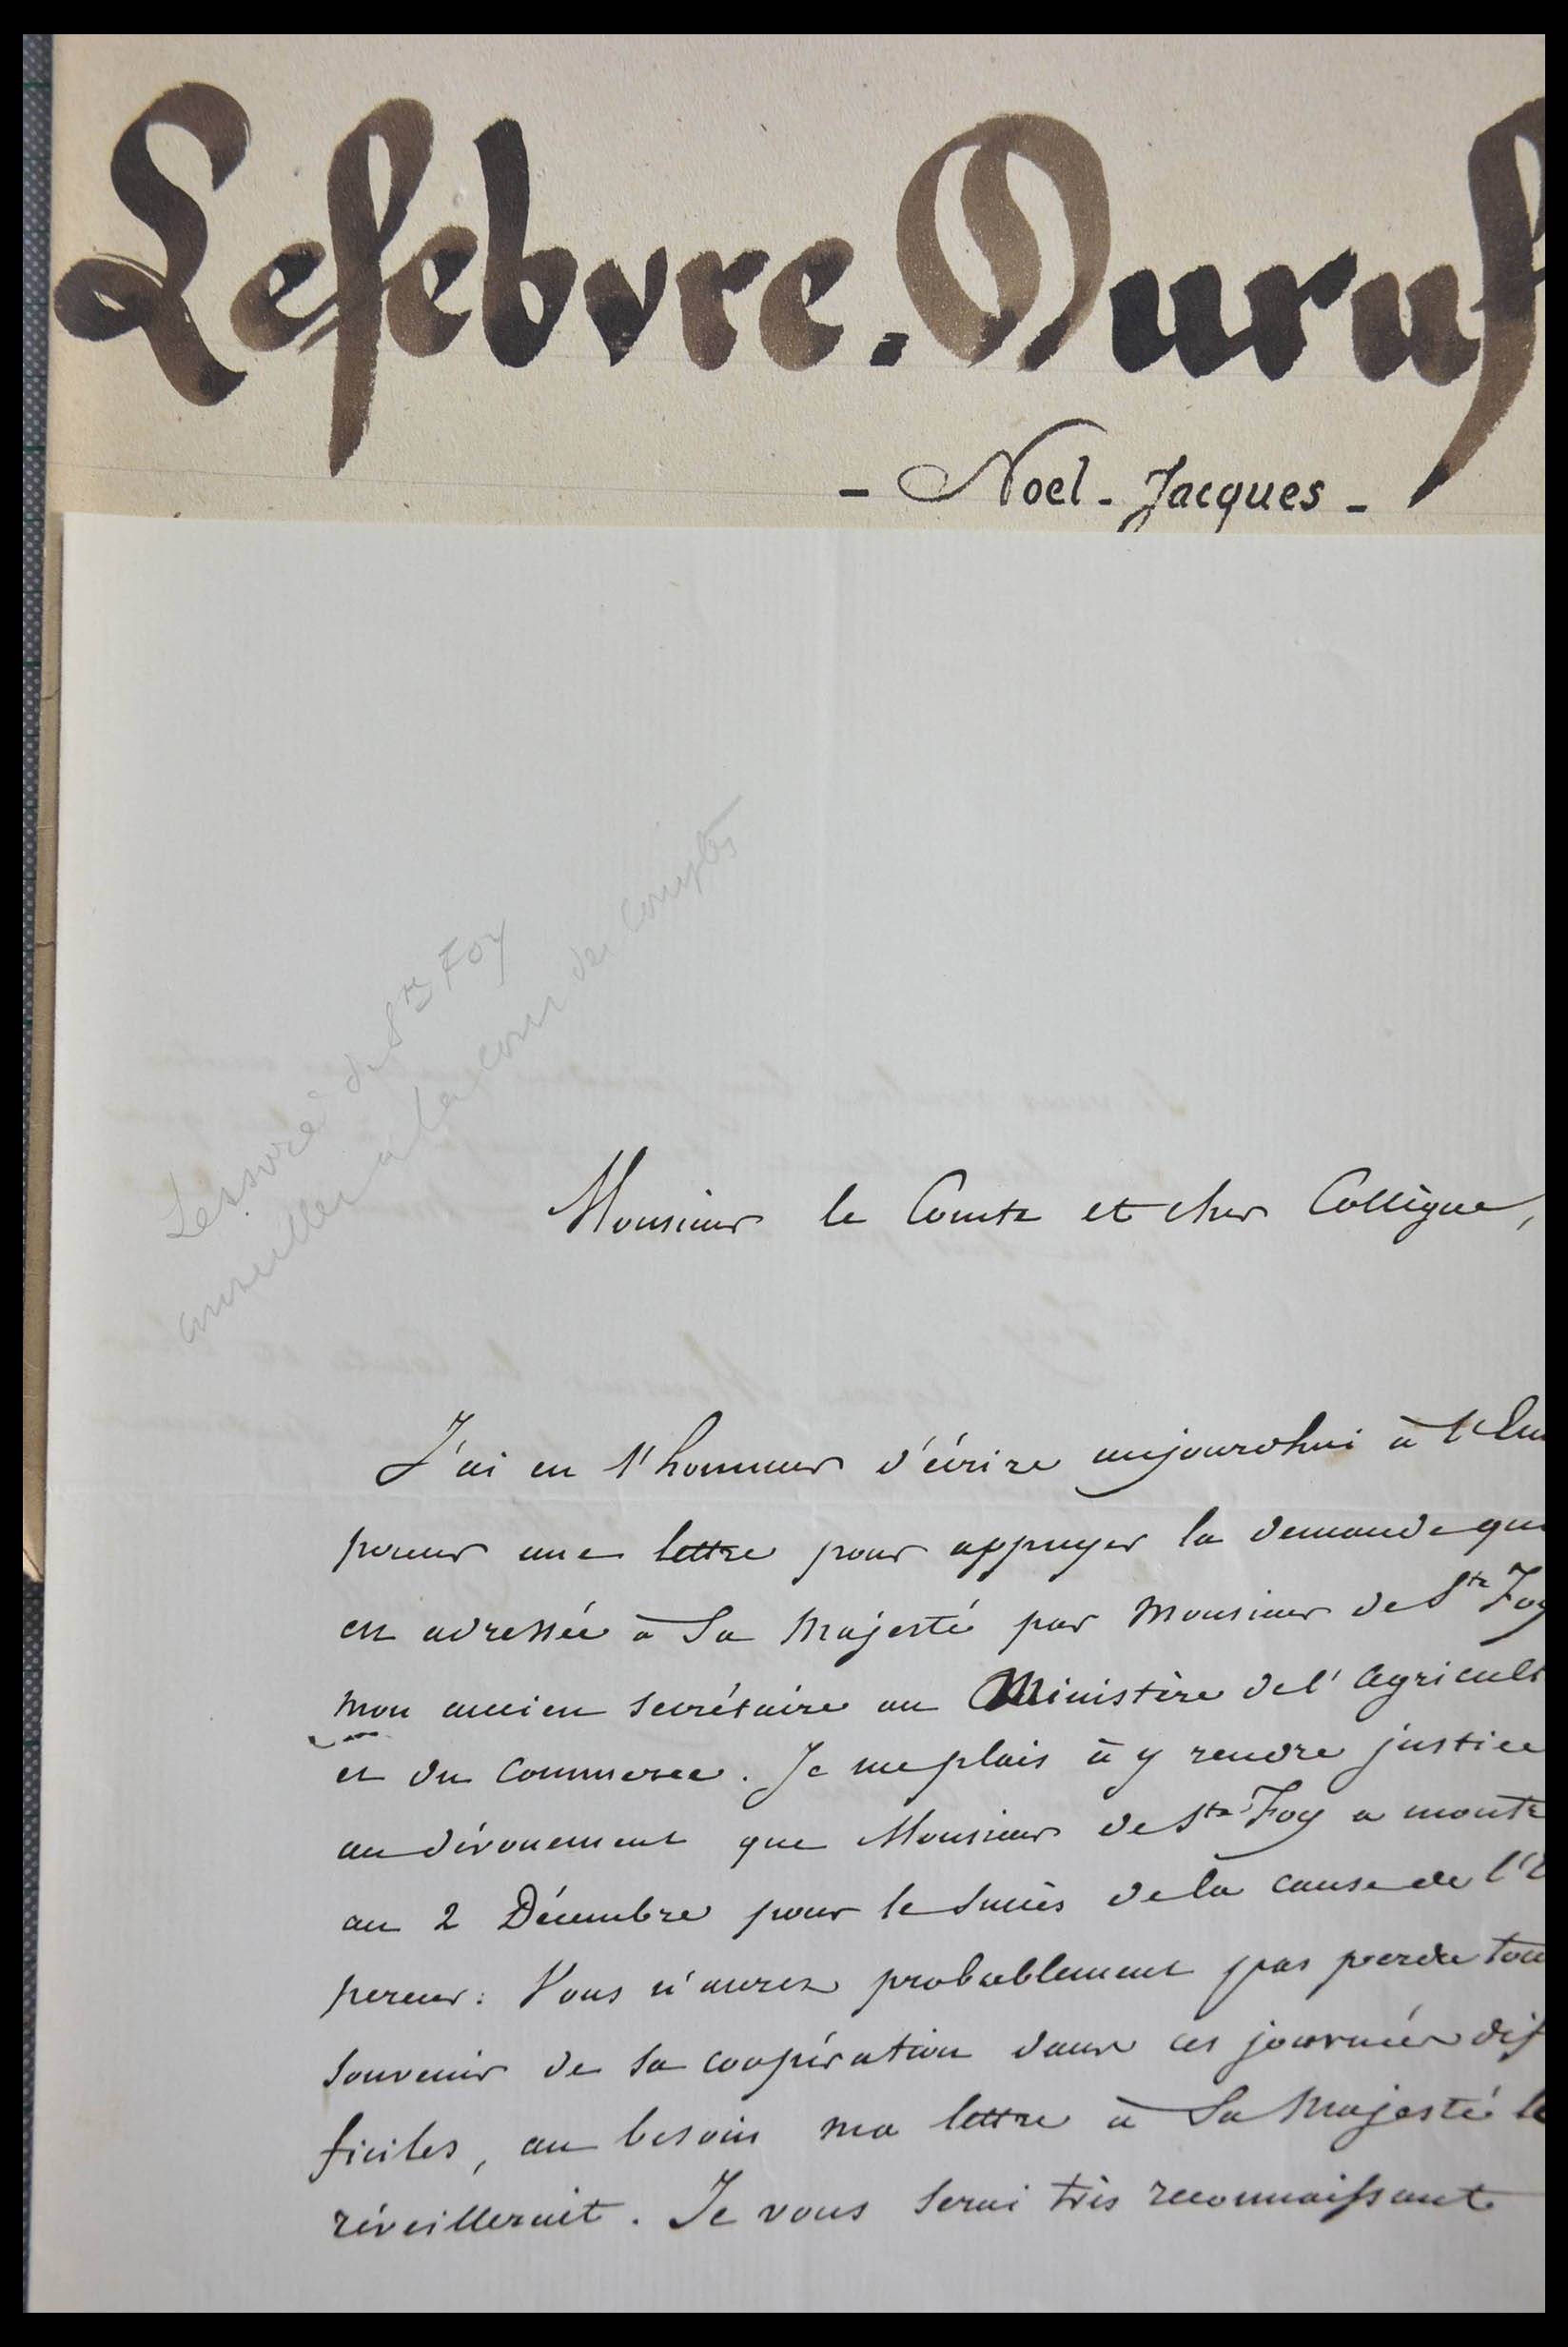 Lefebvre-Duruf
- Noel-Jacques -
Lessoré de Ste Foy
conseiller à la cour des comptes
Monsieur le Comte et cher Collègue,
J'ai eu l'honneur d'écrire aujourd'hui à l'Em
pereur une lettre pour appuyer la demande qui
est adressée à Sa Majesté par Monsieur de Ste Foy
mon ancien secrétaire au Ministère de l'Agricult
et du Commerce. Je me plais à y rendre justice
au dévouement que Monsieur de Ste Foy a montr
au 2 Décembre pour le succès de la cause de l'E
pereur. Vous n'aurez probablement pas perdu tou
souvenir de sa coopération dans ces journées dif
ficiles, au besoin ma lettre à Sa Majesté le
réveillerait. Je vous serai très reconnaissant